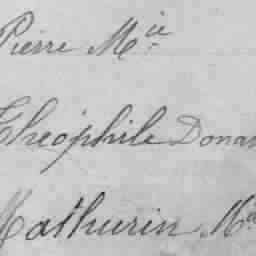 Pierre M.ie
Théophile Donat
Mathurin M.ie